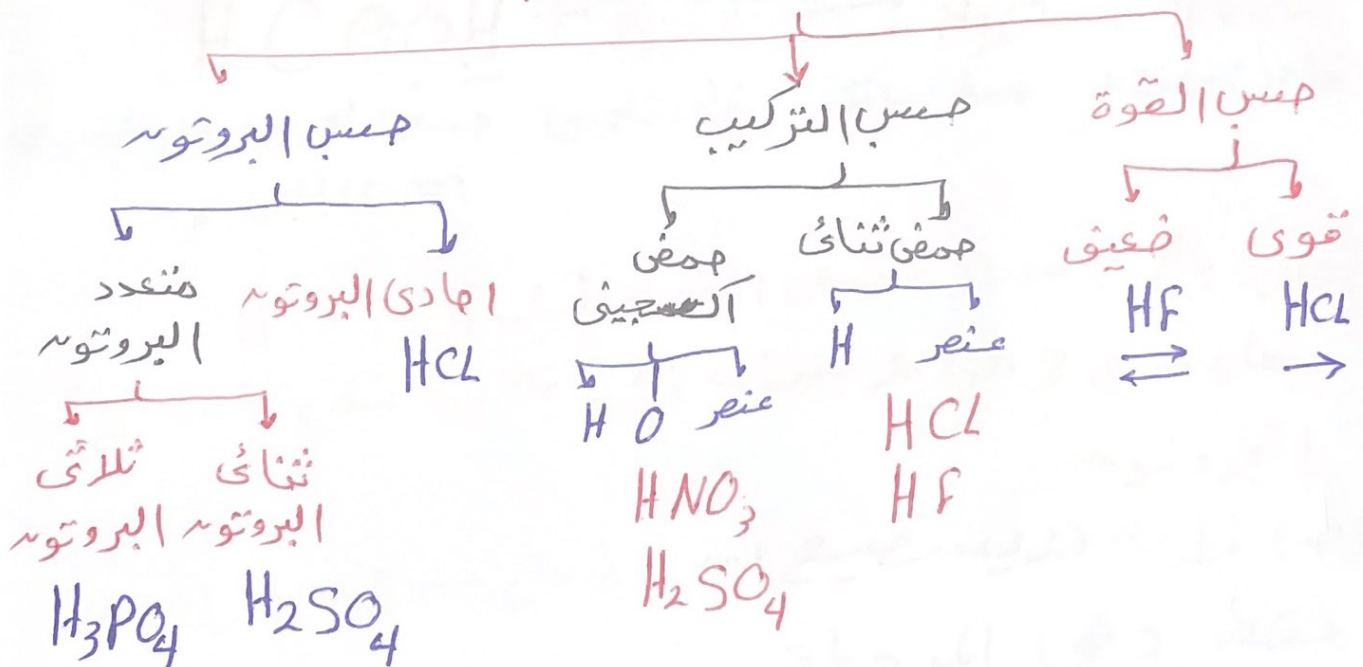 حسب القوة
قوى
ضعيف
HCL
HF
حسب التركيب
حمض ثنائى
عنصر
H
HCL
HF
حمض
أكسجينى
عنصر
O
H
HNO₃
H₂SO₄
حسب البروتون
احادى البروتون
HCL
متعدد
البروتون
ثنائى
البروتون
H₂SO₄
ثلاثى
البروتون
H₃PO₄